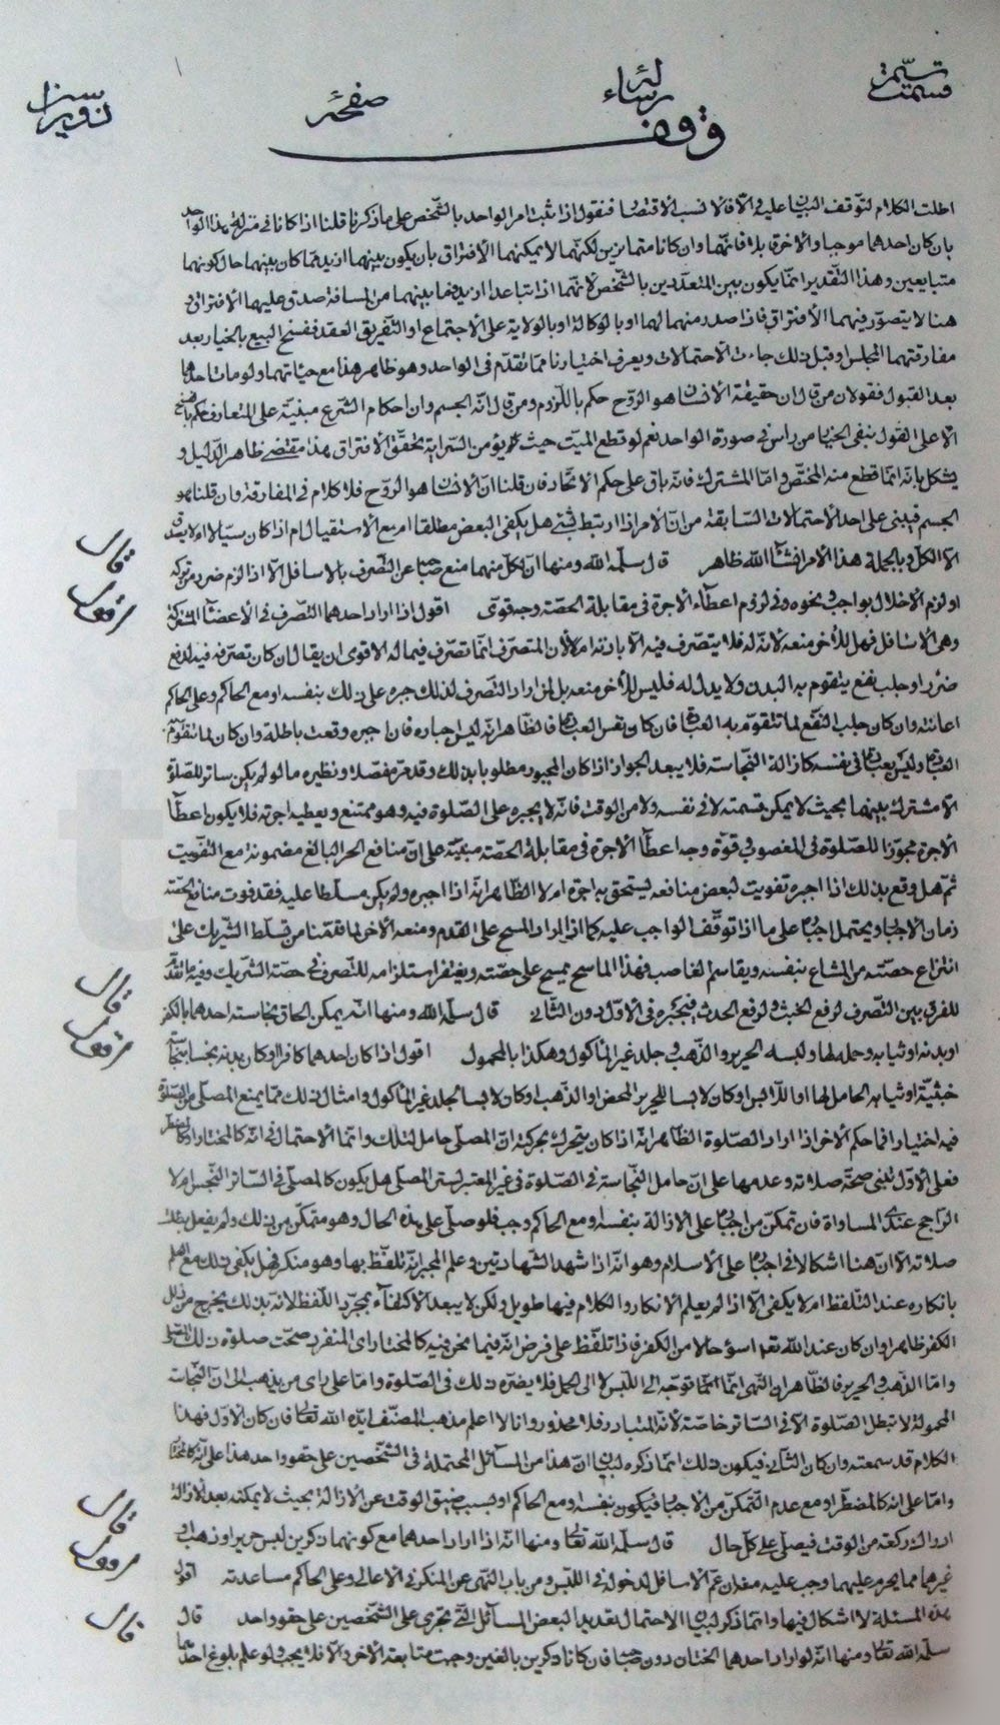 قسمت
رساله
صفحه
وقف
اطلت الكلام لتوقف البيان عليه والا فالانسب الاقتصار فنقول اذا ثبت امر الواحد بالشخص على ما ذكرنا قلنا اذا كانا فى منزلة هذا الواحد
بان كان احدهما موجبا والاخر قابلا فانهما وان كانا متمايزين لكنهما لا يمكنهما الافتراق بان يكون بينهما ازيد مما كان بينهما حال كونهما
متبايعين وهذا التقدير انما يكون بين المتعددين بالشخص لانهما اذا تباعدا ازيد مما بينهما من المسافة صدق عليهما الافتراق و
هنا لا يتصور فيهما الافتراق فاذا صدر منهما لهما او بالوكالة او بالولاية على الاجتماع او التفريق العقد ففسخ البيع بالخيار بعد
مفارقتهما المجلس او قبل ذلك جاءت الاحتمالات ويعرف اختيارنا مما تقدم فى الواحد وهو ظاهر هذا مع حياتهما ولو مات احدهما
بعد القبول فقولان من قال ان حقيقة الانسان هو الروح حكم باللزوم ومن قال انه الجسم وان احكام الشرع مبنية على المتعارف حكم
الا على القول بنفى الخيار من راس فى صورة الواحد نعم لو قطع الميت حيث يؤمن السراية تحقق الافتراق هذا مقتضى ظاهر الدليل و
يشكل بانه انما قطع منه المختص واما المشترك فانه باق على حكم الاتحاد فان قلنا ان الانسان هو الروح فلا كلام فى المفارقة وان قلنا هو
الجسم فيبنى على احد الاحتمالات السابقة من ان الامر اذا ارتبط بشئ هل يكفى البعض مطلقا ام مع الاستقبال ام اذا كان سيالا ام لا بد
الا الكل وبالجملة هذا الامر انشاء الله ظاهر قال سلمه الله ومنها ان لكل منهما منع صاحبه عن التصرف بالاسافل الا اذا لزم ضرر من تركه
قال
او لزم الاخلال بواجب ونحوه وفى لزوم اعطاء الاجرة فى مقابلة الحصة وجه قوى اقول اذا اراد احدهما التصرف فى الاعضاء المشتركة
اقول
وهى الاسافل فهل للاخر منعه لانه له فلا يتصرف فيه الا باذنه ام لا لان المتصرف انما تصرف فيما له الاقوى ان يقال ان كان تصرفه فيه لدفع
ضرر او جلب نفع يتقوم به البدن ولا بدل له فليس للاخر منعه بل لمن اراد التصرف لذلك جبره على ذلك بنفسه او مع الحاكم وعلى الحاكم
اعانته وان كان جلب النفع لما تتقوم به العبادة فان كان نفس العبادة فالظاهر انه ليس له اجباره فان اجبره وقعت باطلة وان كان لما تتقوم
العبادة وليس بعبادة فى نفسه كازالة النجاسة فلا يبعد الجواز اذا كان المجبور مطلوبا بذلك وقد مر مفصلا ونظيره ما لو لم يكن ساتر للصلوة
الا مشترك بينهما بحيث لا يمكن قسمته لا فى نفسه ولا من الوقت فانه لا يجبره على الصلوة فيه وهو ممتنع ويعطيه اجرته فلا يكون اعطاء
الاجرة مجوزا للصلوة فى المغصوب وقوة وجه اعطاء الاجرة فى مقابلة الحصة مبنية على ان منافع الحر البالغ مضمونة مع التفويت
ثم هل وقع بذلك اذا اجبره تفويت لبعض منافعه يستحق به اجرة ام لا الظاهر انه اذا اجبره ولم يكن مسلطا عليه فقد فوت منافع الحصة
زمان الاجبار ويحتمل اجباره على ما اذا توقف الواجب عليه كما اذا اراد المسح على القدم ومنعه الاخر لما قدمنا من تسلط الشريك على
انتزاع حصته من المشاع بنفسه ويقاسم الغاصب فهذا الماسح يمسح على حصته ويغتفر استلزامه للتصرف فى حصة الشريك وفيه ما تقدم
للفرق بين التصرف لرفع الخبث ولرفع الحدث فيجبره فى الاول دون الثانى قال سلمه الله ومنها انه يمكن الحاق نجاسة احدهما بالكفر
قال
او بدنه او ثيابه وحمله لها ولبسه الحرير والذهب وجلد غير المأكول وهكذا بالمحمول اقول اذا كان احدهما كافرا او كان بدنه نجسا بنجاسة
اقول
خبثية او ثيابه الحامل لها او اللابس او كان لابسا للحرير المحض او الذهب او كان لابسا لجلد غير المأكول وامثال ذلك مما يمنع المصلى من الصلوة
فيه اختيارا فما حكم الاخر اذا اراد الصلوة الظاهر انه اذا كان يتحرك بحركته ان المصلى حامل لذلك وانما الاحتمال فى انه كالمختار او كالمضطر
فعلى الاول تبنى صحة صلاته وعدمها على ان حامل النجاسة فى الصلوة فى غير المعتبر لستر المصلى هل يكون كالمصلى فى الساتر النجس ام لا
الراجح عندى المساواة فان تمكن من اجباره على الازالة بنفسه او مع الحاكم وجب فلو صلى على هذه الحال وهو متمكن من ذلك ولم يفعل بطلت
صلاته الا ان هنا اشكالا فى اجباره على الاسلام وهو انه اذا شهد الشهادتين وعلم المجبر انه تلفظ بها وهو منكر فهل يكفى ذلك مع العلم
بانكاره عند التلفظ ام لا يكفى الا اذا لم يعلم الانكار والكلام فيها طويل ولكن لا يبعد الاكتفاء بمجرد اللفظ لانه بذلك يخرج من
الكفر ظاهرا وان كان عند الله تعالى اسوء حالا من الكفر فاذا تلفظ على فرض انه فيما نحن فيه كالمختار اى المنفرد صحت صلوة ذلك
واما الذهب والحرير فالظاهر ان النهى انما توجه الى اللبس لا الى الحمل فلا يضره ذلك فى الصلوة واما على راى من يذهب الى ان النجاسة
المحمولة لا تبطل الصلوة الا فى الساتر خاصة لانه المتبادر فلا محذور وانا لا اعلم مذهب المصنف ايده الله تعالى فان كان الاول فهذا
الكلام قد سمعته وان كان الثانى فيكون ذلك انما ذكره لبيان ان هذا من المسائل المحتملة فى الشخصين على حقو واحد هذا على انه كالمختار
واما على انه كالمضطر او مع عدم التمكن من الاجبار فيكون بنفسه او مع الحاكم او بسبب ضيق الوقت عن الازالة بحيث لا يمكنه بعد الازالة
ادراك ركعة من الوقت فيصلى على كل حال قال سلمه الله تعالى ومنها انه اذا اراد احدهما مع كونهما ذكرين لبس حرير او ذهب او
قال
غيرهما مما يحرم عليهما وجب عليه منعه ان عم الاسافل لدخوله فى اللبس ومن باب النهى عن المنكر فى الاعالى وعلى الحاكم مساعدته اقول
اقول
هذه المسئلة لا اشكال فيها وانما ذكر لبيان الاحتمال تعديدا لبعض المسائل التى تجرى على الشخصين على حقو واحد قال
قال
سلمه الله تعالى ومنها انه لو اراد احدهما الختان دون صاحبه فان كانا ذكرين بالغين وجبت متابعة الاخر والا فلا يجب ولو علم بلوغ احدهما